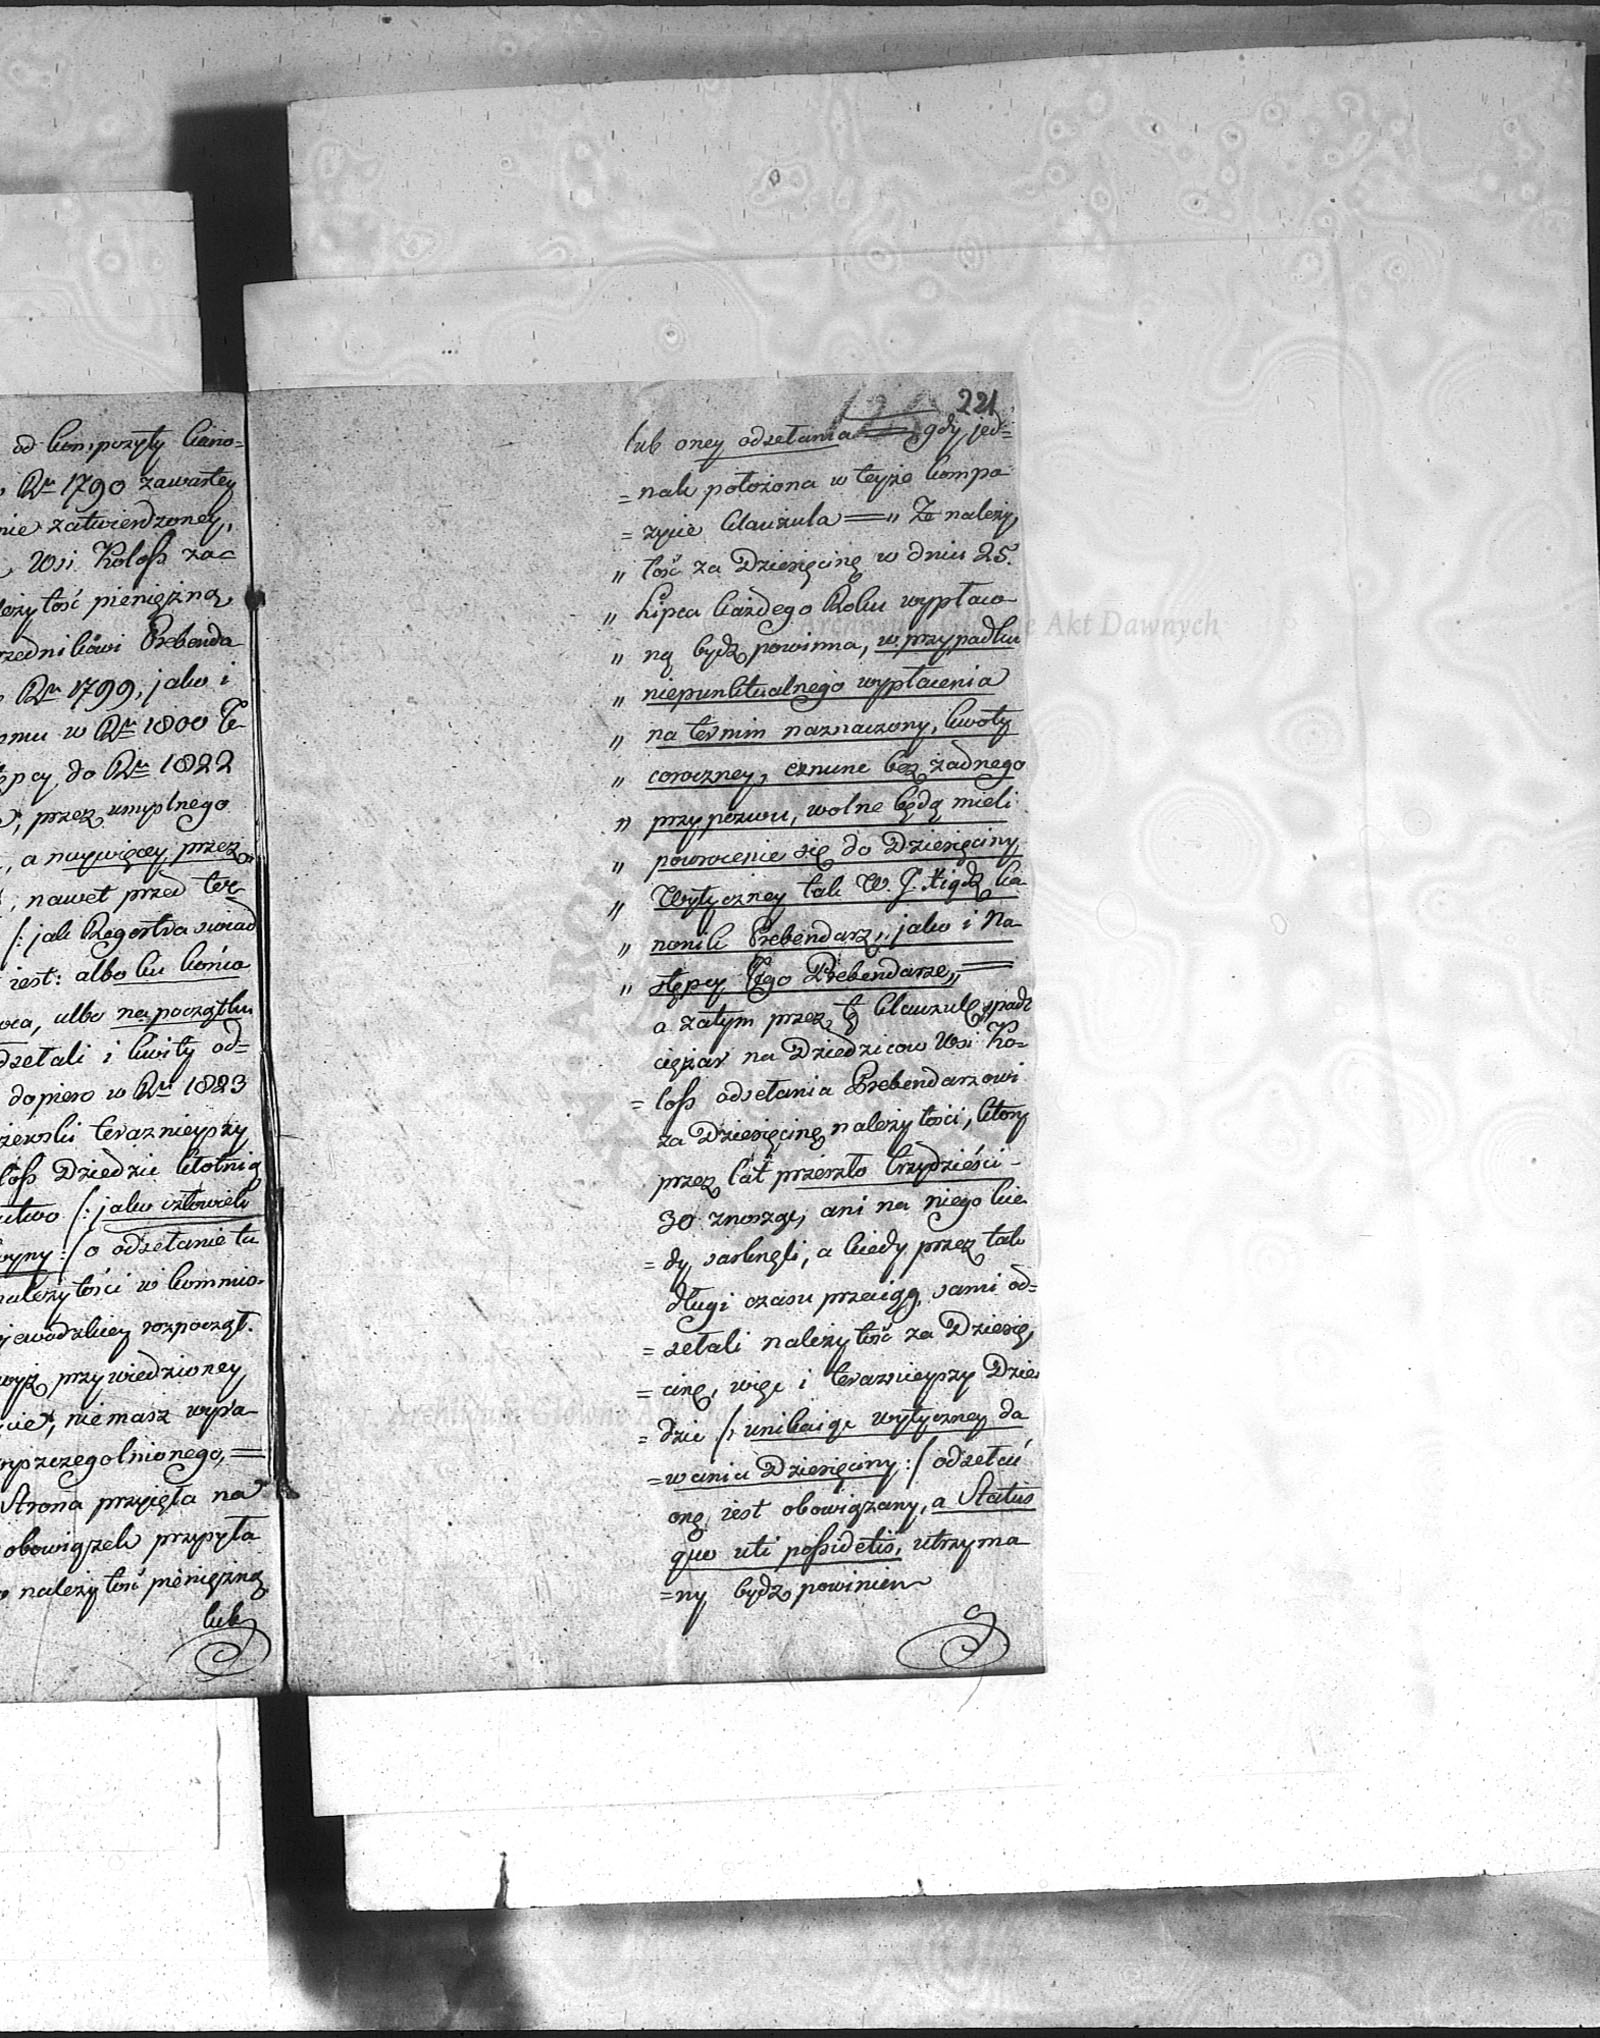 od kompozyty kano=
Ru 1790 zawartey
nie zatwierdzoney,
Wsi Koloss za=
należytość pieniężną,
Prebenda
Ru 1799, jako i
w Ru 1800 Te
do Ru 1822
przez umyślnego
, a naywięcey przez
, nawet przed ter
/: jak Regestra świad
iest: albo ku końco
, albo na początku
odsełali i kwity od=
dopiero w Ru 1823
teraznieyszy
Koloss Dziedzic
/: jako człowiek
:/ o odsełanie tu
należytości w kommis=
rozpoczął.
wyż przywiedzioney
, niemasz wyra=
wyszczegolnionego, =
Strona przyięła na
obowiązek przysyła
należytość pieniężną
lub
221
lub oney odsełania = gdy jed=
=nak położona w teyże kompo
=zycie Clauzula =„ Ze należy,
„ tość za Dziesięcinę w dniu 25.
„ Lipca każdego Roku wypłaco
„ ną bydź powinna, w przypadku
„ niepunktualnego wypłacenia
„ na termin naznaczony, kwoty
„ coroczney, exnunc bez żadnego
„ przypozwu, wolne będą mieli
„ powrocenie się do Dziesięciny
„ Wytyczney tak W. J. Xiądz ka
„ nonik Prebendarz, jako i Na
„ stępcy Jego Prebendarze„ =
a zatym przez tę Clauzulę spadł
ciężar na Dziedzicow Wsi Ko=
=loss odsełania Prebendarzowi
za Dziesięcinę należytości, ktory
przez lat przeszło trzydzieści -
30 znosząc, ani na niego kie
=dy sarknęli, a kiedy przez tak
długi czasu przeciąg, sami od=
=sełali należytość za Dziesię,
=cinę, więc i teraznieyszy Dzie
=dzic /: unikaiąc wytyczney da
=wania Dziesięciny :/ odsełać
onę iest obowiązany, a Status
quo uti possidetis, utrzyma
=ny bydź powinien
Archiwum Główne Akt Dawnych
Archiwum Główne Akt